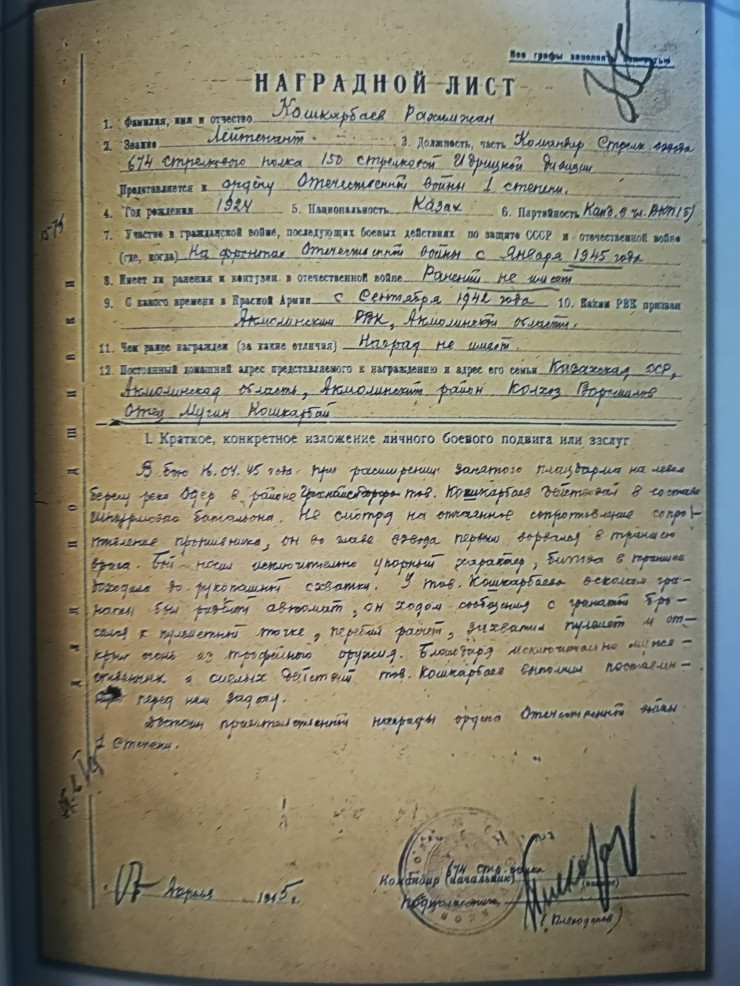 Все графы заполнять полностью
НАГРАДНОЙ ЛИСТ
1. Фамилия, имя и отчество Кошкарбаев Рахимжан
2. Звание Лейтенант. 3. Должность, часть Командир Стрелк. взвода
674 стрелкового полка 150 стрелковой Идрицкой дивизии
Представляется к ордену Отечественной войны 1 степени.
4. Год рождения 1924 5. Национальность Казах 6. Партийность Канд. в чл. ВКП(б)
7. Участие в гражданской войне, последующих боевых действиях по защите СССР и отечественной войне
(где, когда) На фронтах Отечественной войны с Января 1945 года
8. Имеет ли ранения и контузии в отечественной войне Ранений не имеет
9. С какого времени в Красной Армии с Сентября 1942 года 10. Каким РВК призван
Акмолинским РВК, Акмолинской области.
11. Чем ранее награжден (за какие отличия) Наград не имеет.
12 Постоянный домашний адрес представляемого к награждению и адрес его семьи Казахская ССР,
Акмолинская область, Акмолинский район Колхоз Ворошилов
Отец Мусин Кошкарбай
I. Краткое, конкретное изложение личного боевого подвига или заслуг
В бою 16.04.45 года при расширении занятого плацдарма на левом
берегу реки Одер в районе тов. Кошкарбаев действовал в составе
штурмового батальона. Не смотря на отчаянное сопротивление сопро-
тивление противника, он во главе взвода первым ворвался в траншею
врага. Бой носил исключительно упорный характер, битва в траншее
доходила до рукопашной схватки. У тов. Кошкарбаева осколком гра-
наты был разбит автомат, он ходом сообщения с гранатой бро-
сился к пулеметной точке, перебил расчет, захватил пулемет и от-
крыл огонь из трофейного оружия. Благодаря исключительно муже-
ственных и смелых действий тов. Кошкарбаев выполнил поставлен-
ную перед ним задачу.
Достоин правительственной награды ордена Отечественной войны
1 степени.
Апреля 1945 г.
674 стр. полка
Командир (начальник)
Подполковник
(Плеходанов)
НЕ ПОДШИВКИ ДЛЯ